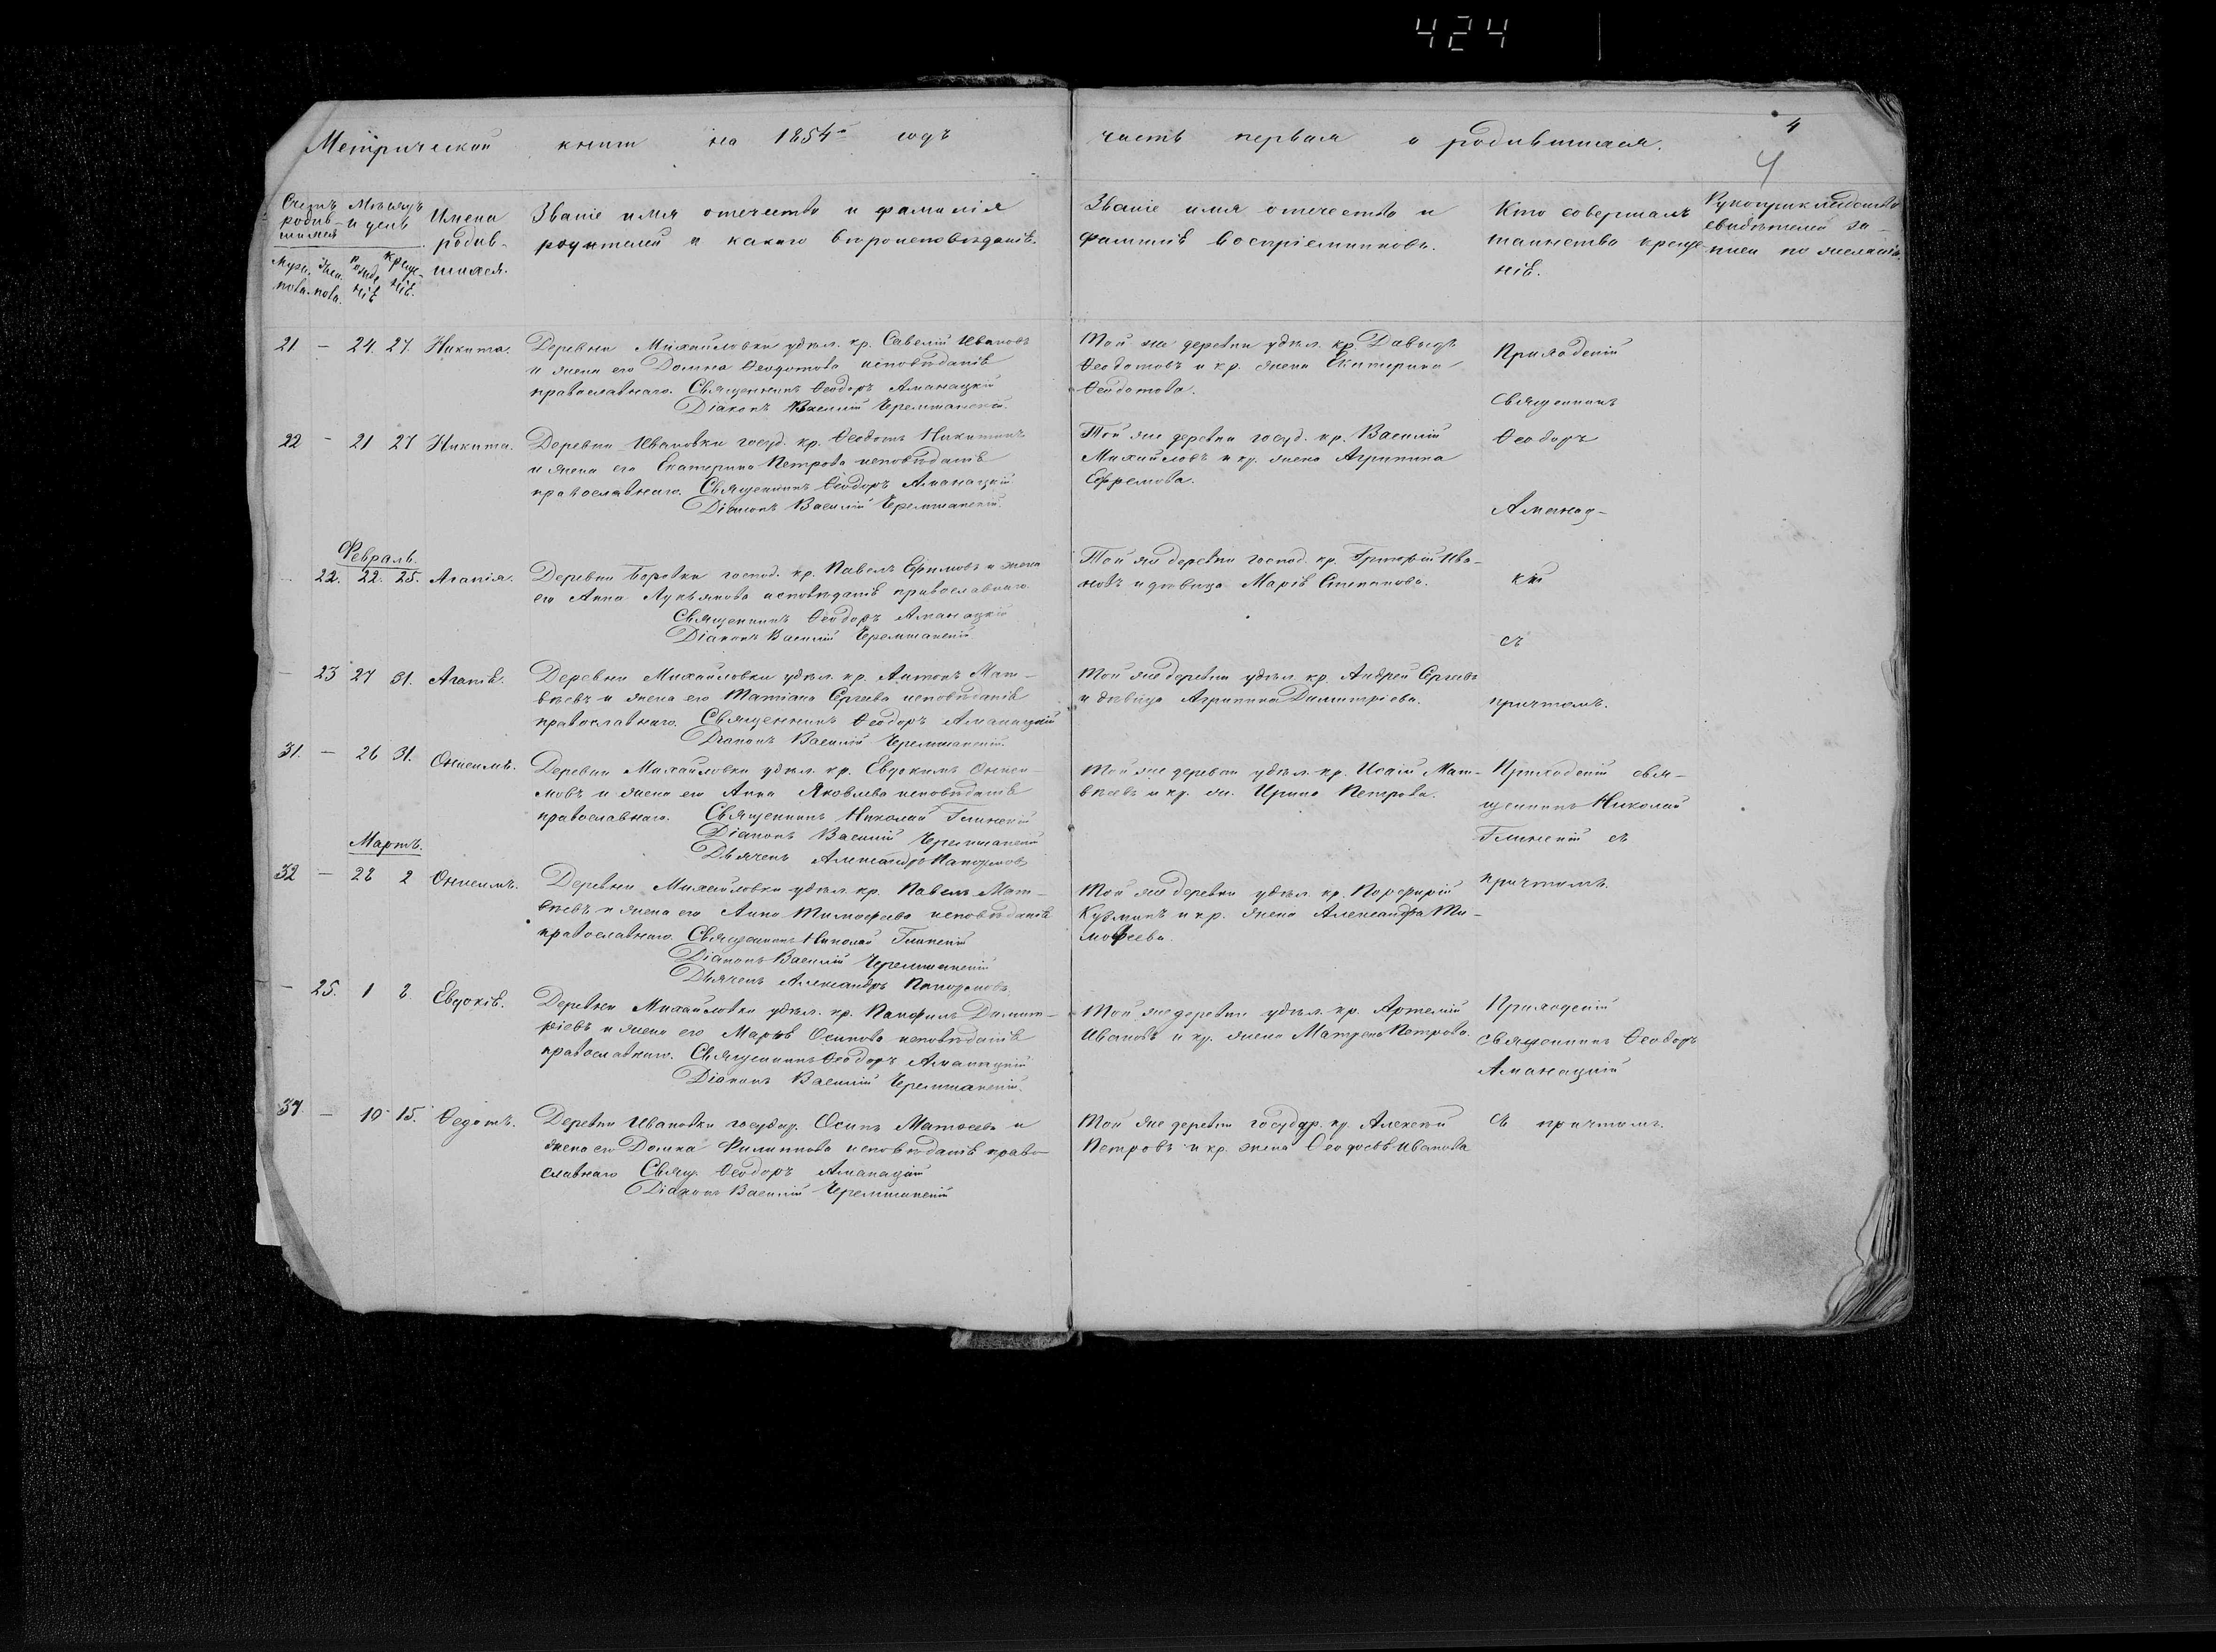 424
Метрической книги на 1854й годъ часть первая о родившихся. 4
4
Счетъ родив-шихся
Мѣсяцъ и день
Имена родив-шихся.
Званіе имя отечество и фамилія
родителей и какого вѣроисповѣданія.
Званіе имя отечество и
фамилія воспріемниковъ.
Кто совершалъ
таинство креще-
нія.
Рукоприкладство
свидѣтелей за-
писи по желанію.
Муж. пола. Жен. пола. Рожде нія Креще-нія.
21 — 24. 27. Никита.
Деревни Михайловки удѣл. кр. Савелій Ивановъ
и жена его Домна Ѳеодотова исповѣданія
православнаго. Священникъ Ѳеодоръ Аманацкій
Діаконъ Василій Черемшанскій.
Той же деревни удѣл. кр. Давыдъ
Ѳеодотовъ и кр. жена Екатерина
Ѳеодотова.
Приходскій
Священникъ
22 — 21 27 Никита.
Деревни Ивановки госуд. кр. Ѳеодотъ Никитинъ
и жена его Екатерина Петрова исповѣданія
православнаго. Священникъ Ѳеодоръ Аманацкій
Діаконъ Василій Черемшанскій.
Той же деревни госуд. кр. Василій
Михайловъ и кр. жена Агрипина
Ефремова.
Ѳеодоръ
Аманац-
Февраль.
22. 22. 25. Агапія.
Деревни Боровки господ. кр. Павелъ Ефимовъ и жена
его Анна Лукьянова исповѣданія православнаго.
Священникъ Ѳеодоръ Аманацкій
Діаконъ Василій Черемшанскій.
Той же деревни господ. кр. Григорій Ива-
новъ и дѣвица Марія Степанова.
кій
съ
— 23 27 31. Агапія.
Деревни Михайловки удѣл. кр. Антонъ Мат-
вѣевъ и жена его Татіана Сергѣева исповѣданія
православнаго. Священникъ Ѳеодоръ Аманацкій
Діаконъ Василій Черемшанскій.
Той же деревни удѣл. кр. Андрей Сергѣевъ
и дѣвица Агрипина Димитріева.
причтомъ.
31. — 26 31. Онисимъ.
Деревни Михайловки удѣл. кр. Евдокимъ Ониси-
мовъ и жена его Анна Яковлева исповѣданія
православнаго. Священникъ Николай Глинскій
Діаконъ Василій Черемшанскій
Дьячекъ Александръ
Той же деревни удѣл. кр. Исаій Мат-
вѣевъ и кр. ж. Ирина Петрова.
Приходскій свя-
щенникъ Николай
Глинскій съ
причтомъ.
Мартъ.
32 — 28 2 Онисимъ.
Деревни Михайловки удѣл. кр. Павелъ Мат-
вѣевъ и жена его Анна Тимофеева исповѣданія
православнаго. Священникъ Николай Глинскій
Діаконъ Василій Черемшанскій
Дьячекъ Александръ
Той же деревни удѣл. кр. Порфирій
Кузминъ и кр. жена Александра Ти-
мофеева.
— 25. 1 2. Евдокія.
Деревни Михайловки удѣл. кр. Панфилъ Димит-
ріевъ и жена его Марія Осипова исповѣданія
православнаго. Священникъ Ѳеодоръ Аманацкій
Діаконъ Василій Черемшанскій.
Той же деревни удѣл. кр. Артемій
Ивановъ и кр. жена Матрена Петрова.
Приходскій
священникъ Ѳеодоръ
Аманацкій
съ причтомъ.
37. — 10 15. Ѳедотъ.
Деревни Ивановки государ. Осипъ Матвеевъ и
жена его Домна Филиппова исповѣданія право-
славнаго Свящ. Ѳеодоръ Аманацкій
Діаконъ Василій Черемшанскій
Той же деревни государ. кр. Алексѣй
Петровъ и кр. жена Ѳеодосія Иванова